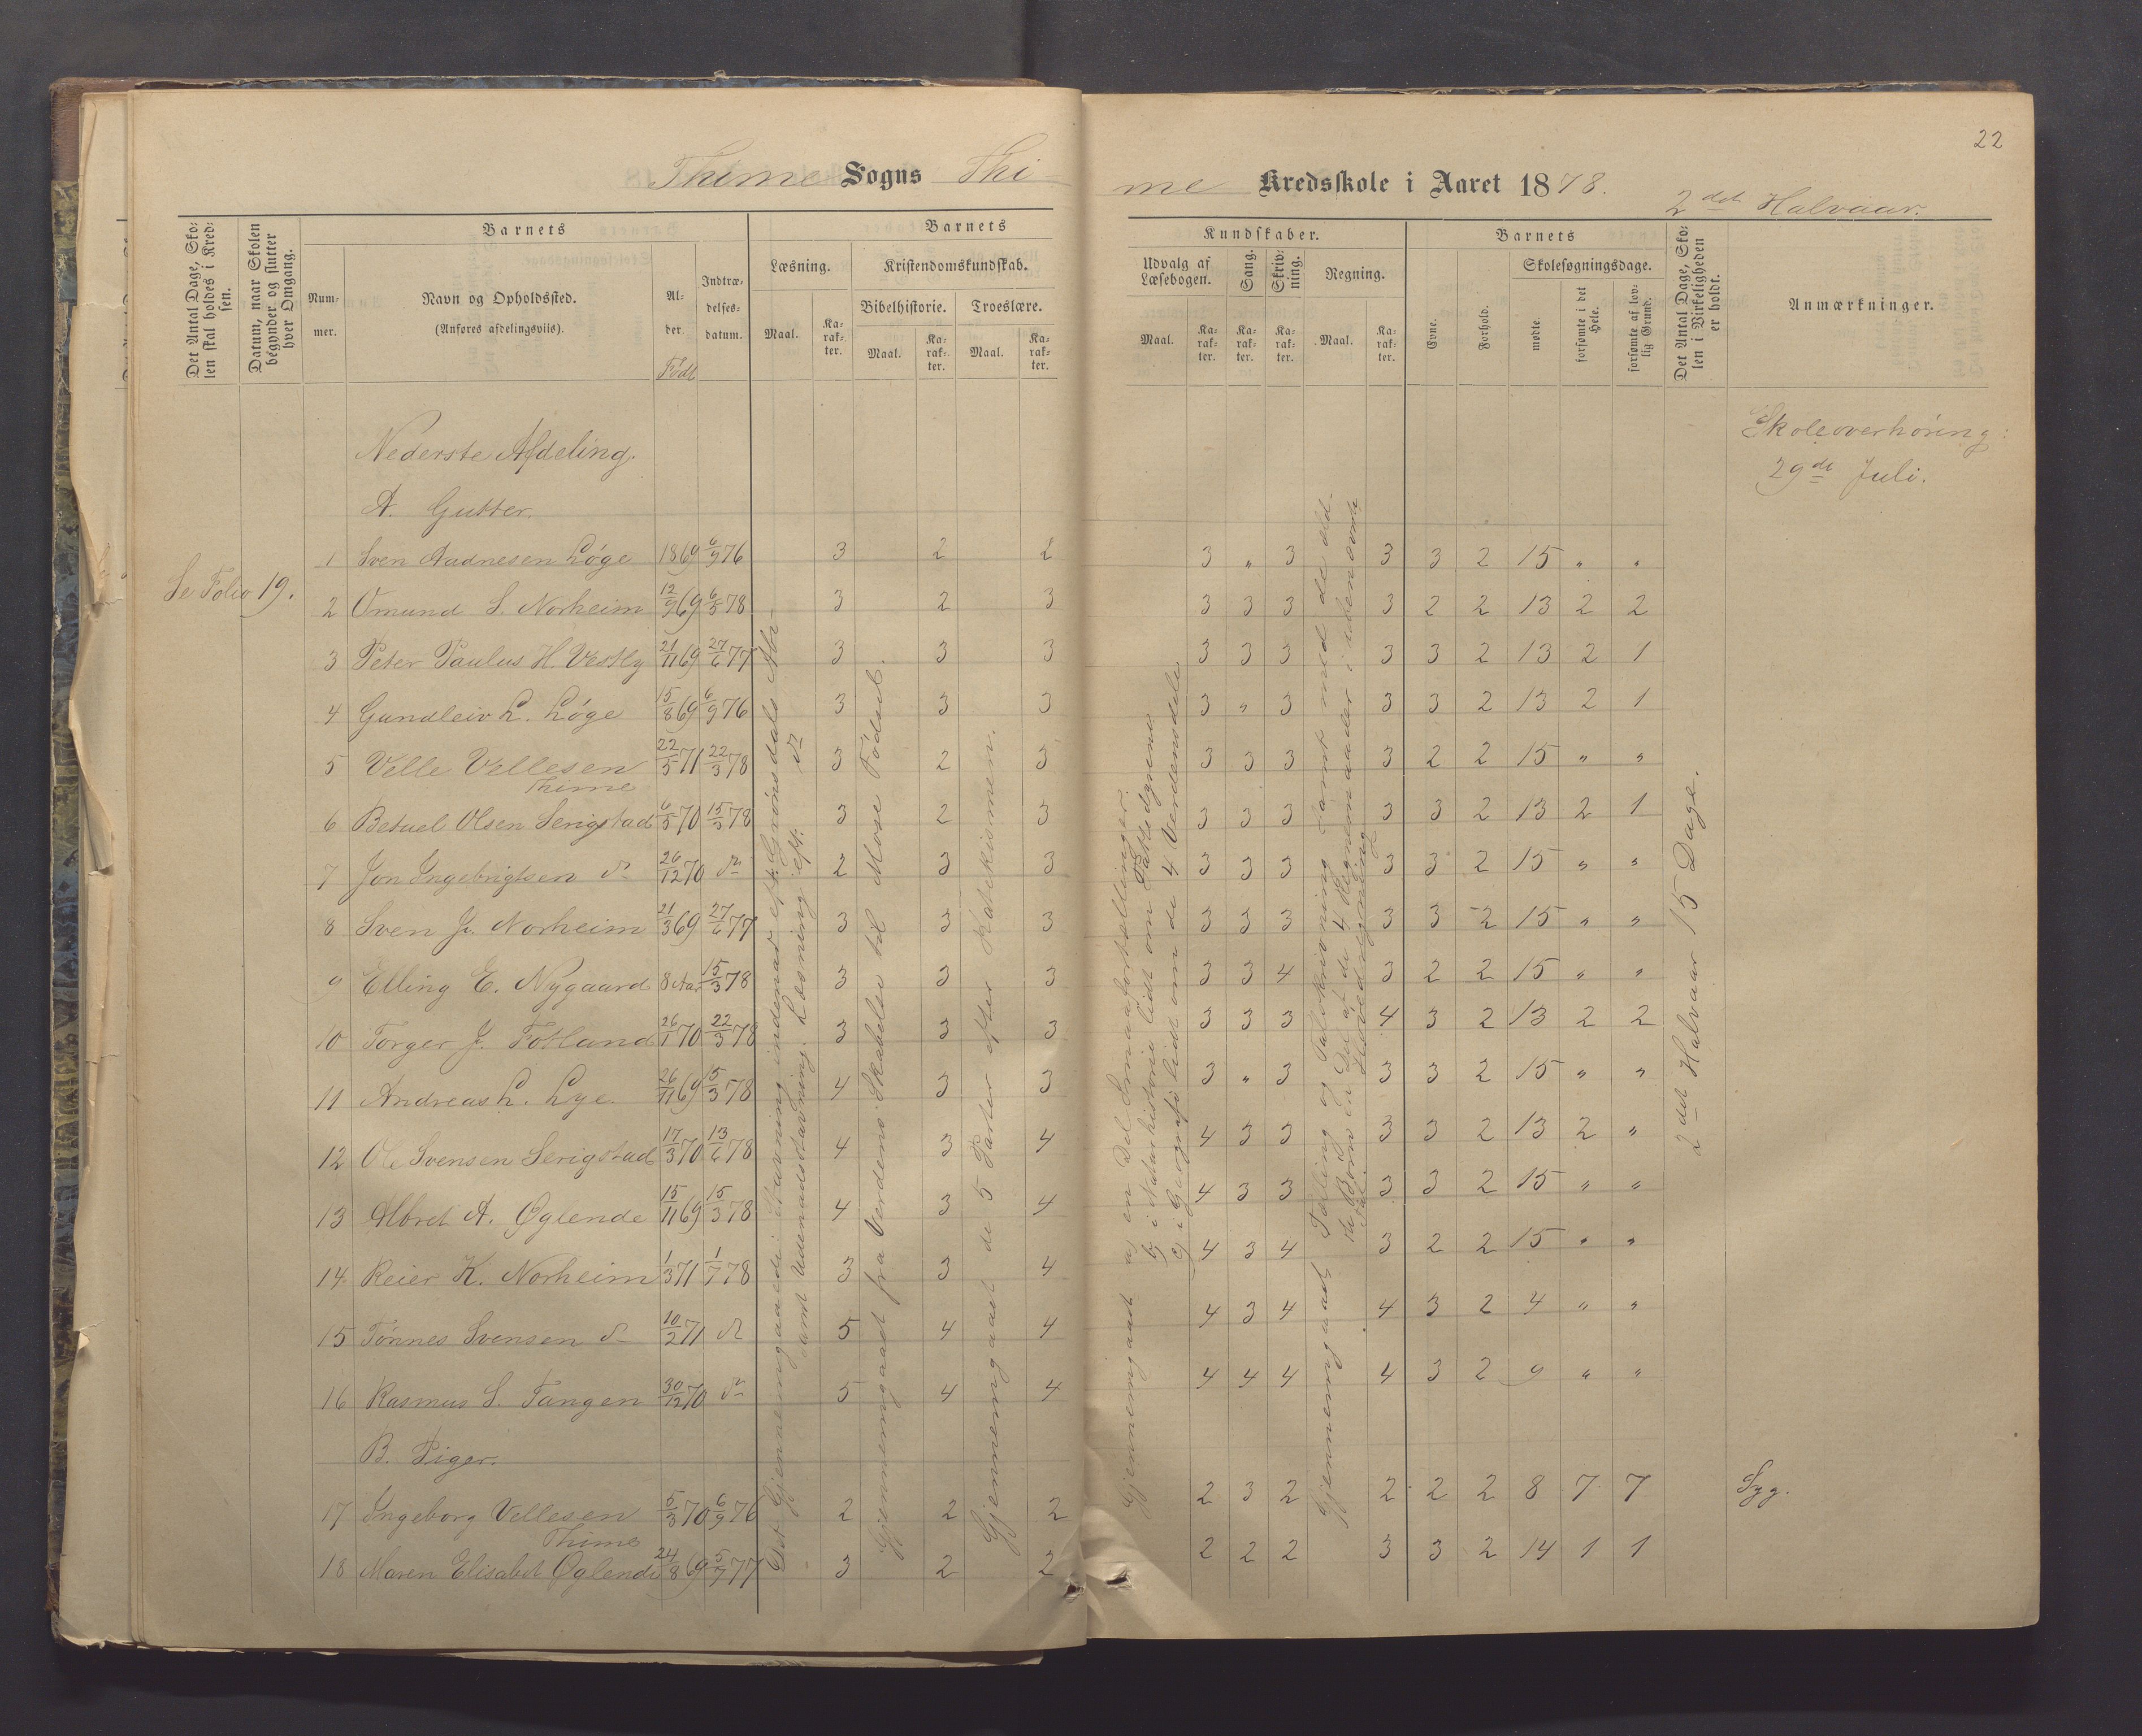 22
Thime Sogns Thi-
me Kredsskole i Aaret 1878.
2det Halvaar.
Det Antal Dage, Sko-
len skal holdes i Kred-
sen.
Datum, naar Skolen
begynder og slutter
hver Omgang.
Barnets
Num-
mer.
Navn og Opholdssted.
(Anføres afdelingsviis).
Al-
der.
Født
Indtræ-
delses-
datum.
Barnets
Læsning.
Maal.
Ka-
rak-
ter.
Kristendomskundskab.
Bibelhistorie.
Maal.
Ka-
rak-
ter.
Troeslære.
Maal.
Ka-
rak-
ter.
Kundskaber.
Udvalg af
Læsebogen.
Maal.
Ka-
rak-
ter.
Sang.
Ka-
rak-
ter.
Skriv-
ning.
Ka-
rak-
ter.
Regning.
Maal.
Ka-
rak-
ter.
Barnets
Evne.
Forhold.
Skolesøgningsdage.
mødte
forsømte i det
Hele.
forsømte af lov-
lig Grund.
Det Antal Dage, Sko-
len i Virkeligheden
er holdt.
Anmærkninger.
Skoleoverhøring:
29de Juli.
Nederste Afdeling.
A. Gutter.
Se Folio 19.
1 Sven Aadnesen Løge 1869 6/9 76 3 2 2 3 " 3 3 3 2 15 " "
2 Omund S. Norheim 12/9 69 6/5 78 3 2 3 3 3 3 3 2 2 13 2 2
3 Peter Paulus H. Vestly 21/11 69 27/6 77 3 3 3 3 3 3 3 3 2 13 2 1
4 Gundleiv L. Løge 15/8 69 6/9 76 3 3 3 3 " 3 3 3 2 13 2 1
5 Velle Vellesen Thime 22/5 71 22/3 78 3 2 3 3 3 3 3 2 2 15 " "
6 Betuel Olsen Serigstad 6/5 70 15/3 78 3 2 3 3 3 3 3 3 2 13 2 1
7 Jon Ingebrigtsen do 26/12 70 do 2 3 3 3 3 3 3 3 2 15 " "
8 Sven J. Norheim 21/3 69 27/6 77 3 3 3 3 3 3 3 3 2 15 " "
9 Elling E. Nygaard 8 Aar 15/3 78 3 3 3 3 3 4 3 2 2 15 " "
10 Torger J. Fotland 26/1 70 22/3 78 3 3 3 3 3 3 4 3 2 13 2 2
11 Andreas L. Lye. 26/11 69 15/3 78 4 3 3 3 " 3 3 3 2 15 " "
12 Ole Svensen Serigstad 17/3 70 13/6 78 4 3 4 4 3 3 3 3 2 13 2 "
13 Albret A. Øglende 15/11 69 15/3 78 4 3 4 4 3 3 3 3 2 15 " "
14 Reier K. Norheim 1/3 71 1/7 78 3 3 4 4 3 4 3 2 2 15 " "
15 Tønnes Svensen do 10/2 71 do 5 4 4 4 3 4 4 3 2 4 " "
16 Rasmus S. Tangen 30/12 70 do 5 4 4 4 4 4 4 3 2 9 " "
B. Piger.
17 Ingeborg Vellesen Thime 5/3 70 6/9 76 2 2 2 2 3 2 2 2 2 8 7 7 Syg.
18 Maren Elisabet Øglende 24/8 69 5/7 77 3 2 2 2 2 2 3 3 2 14 1 1
Det Gjennemgaaede: Stavning indenad eft. Grønsdals Abc
samt Udenadsstavning. Læsning eft. do
Gjennemgaaet fra Verdens Skabelse til Mose Fødsel.
Gjennemgaaet de 5 Parter efter Katekismen.
Gjennemgaaet a, en Del Smaafortællinger.
b, i Naturhistorie lidt om Pattedyrene
c, i Geografi lidt om de 4 Verdensdele
Gjennemgaaet Tæling og Talskrivning samt med de
Børn en Del af de 4 Regnemaader i ubenævnte
Tal. Hovedregning
2det Halvaar 15 Dage.